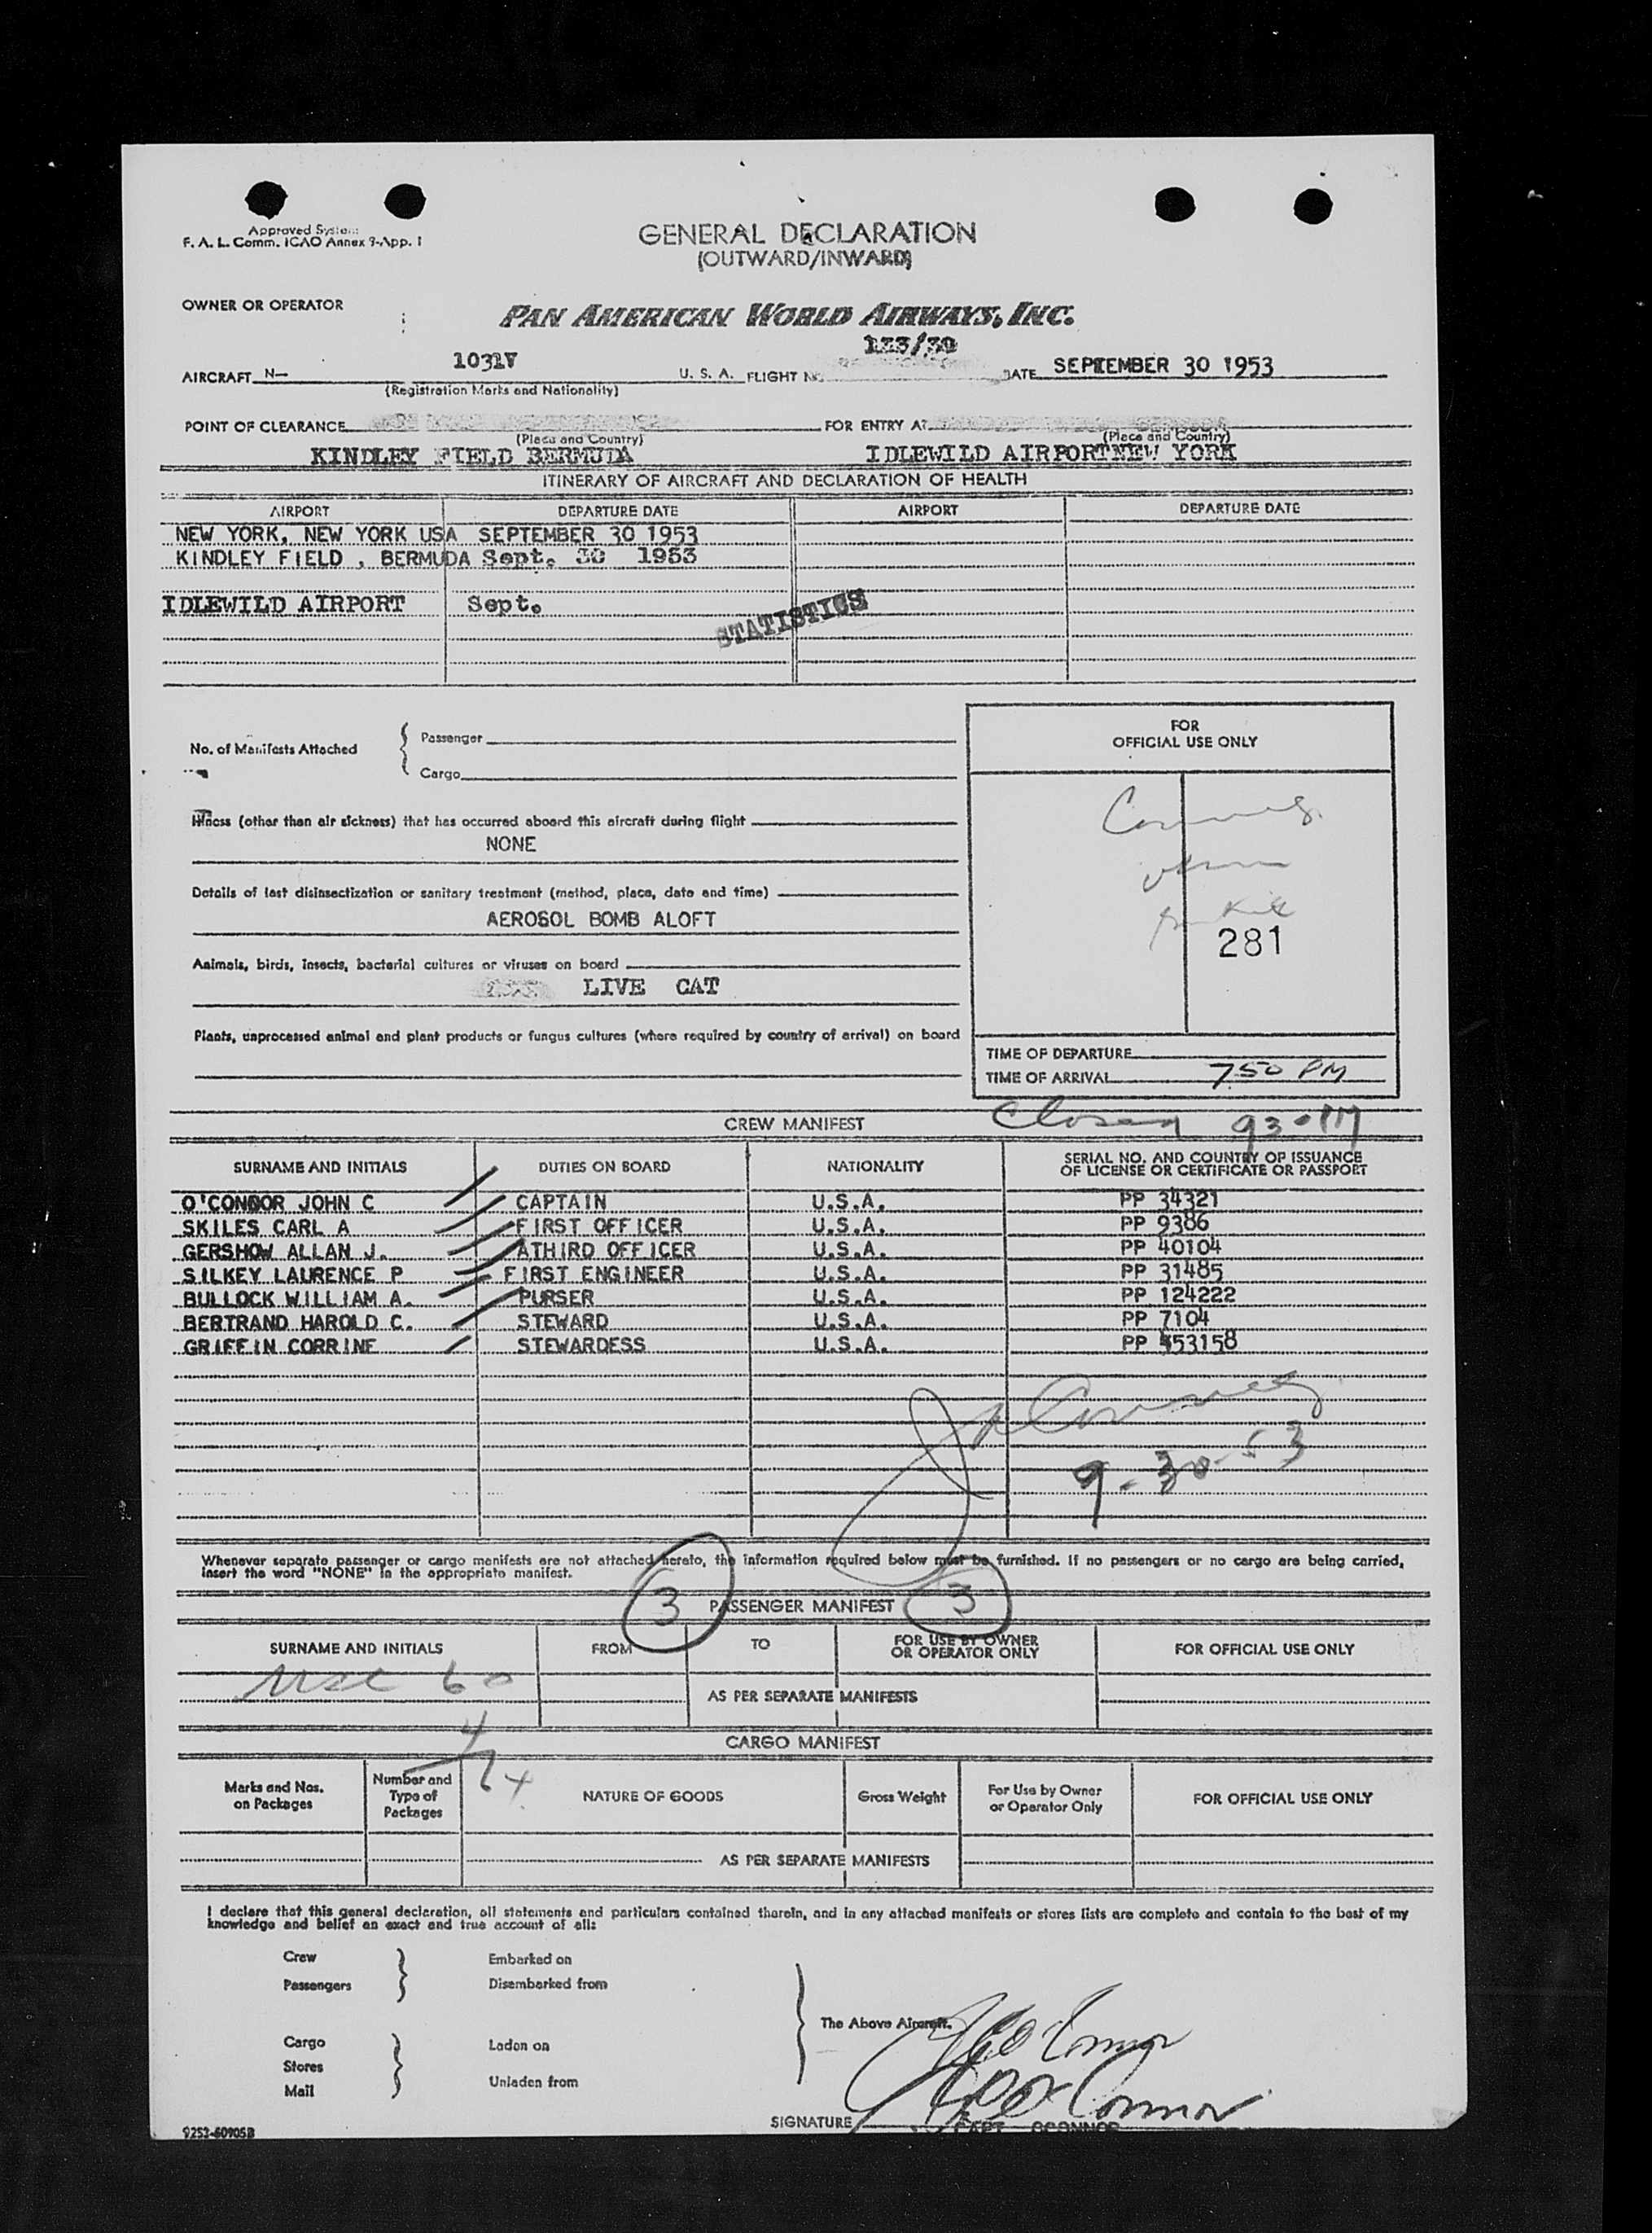 Approved System
F. A. L. Comm. ICAO Annex 9-App. 1
GENERAL DECLARATION
(OUTWARD/INWARD)
OWNER OR OPERATOR
PAN AMERICAN WORLD AIRWAYS, INC.
133/30
AIRCRAFT N— 1031V U. S. A. FLIGHT No. DATE SEPTEMBER 30 1953
(Registration Marks and Nationality)
POINT OF CLEARANCE FOR ENTRY AT
(Place and Country) (Place and Country)
KINDLEY FIELD BERMUDA IDLEWILD AIRPORTNEW YORK
ITINERARY OF AIRCRAFT AND DECLARATION OF HEALTH
AIRPORT DEPARTURE DATE AIRPORT DEPARTURE DATE
NEW YORK, NEW YORK USA SEPTEMBER 30 1953
KINDLEY FIELD , BERMUDA Sept. 30 1953
IDLEWILD AIRPORT Sept.
STATISTICS
No. of Manifests Attached
Passenger
Cargo
Illness (other than air sickness) that has occurred aboard this aircraft during flight
NONE
Details of last disinsectization or sanitary treatment (method, place, date and time)
AEROSOL BOMB ALOFT
Animals, birds, insects, bacterial cultures or viruses on board
LIVE CAT
Plants, unprocessed animal and plant products or fungus cultures (where required by country of arrival) on board
FOR
OFFICIAL USE ONLY
281
TIME OF DEPARTURE
TIME OF ARRIVAL 750 PM
Closed 930PM
CREW MANIFEST
SURNAME AND INITIALS DUTIES ON BOARD NATIONALITY SERIAL NO. AND COUNTRY OF ISSUANCE
OF LICENSE OR CERTIFICATE OR PASSPORT
O'CONNOR JOHN C CAPTAIN U.S.A. PP 34321
SKILES CARL A FIRST OFFICER U.S.A. PP 9386
GERSHOW ALLAN J. THIRD OFFICER U.S.A. PP 40104
SILKEY LAURENCE P FIRST ENGINEER U.S.A. PP 31485
BULLOCK WILLIAM A. PURSER U.S.A. PP 124222
BERTRAND HAROLD C. STEWARD U.S.A. PP 7104
GRIFFIN CORRINE STEWARDESS U.S.A. PP 553158
9-30-53
Whenever separate passenger or cargo manifests are not attached hereto, the information required below must be furnished. If no passengers or no cargo are being carried,
insert the word "NONE" in the appropriate manifest.
3 3
PASSENGER MANIFEST
SURNAME AND INITIALS FROM TO FOR USE BY OWNER
OR OPERATOR ONLY FOR OFFICIAL USE ONLY
60
AS PER SEPARATE MANIFESTS
4
64
CARGO MANIFEST
Marks and Nos.
on Packages
Number and
Type of
Packages
NATURE OF GOODS
Gross Weight
For Use by Owner
or Operator Only
FOR OFFICIAL USE ONLY
AS PER SEPARATE MANIFESTS
I declare that this general declaration, all statements and particulars contained therein, and in any attached manifests or stores lists are complete and contain to the best of my
knowledge and belief an exact and true account of all:
Crew Embarked on
Passengers Disembarked from
The Above Aircraft.
Cargo Laden on
Stores
Mail Unladen from
SIGNATURE
CAPT OCONNOR
9252-60905B